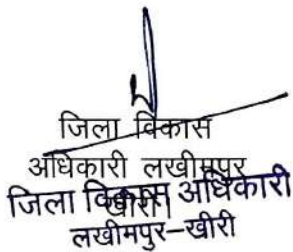 जिला विकास
अधिकारी लखीमपुर
खीरी।
जिला विकास अधिकारी
लखीमपुर–खीरी